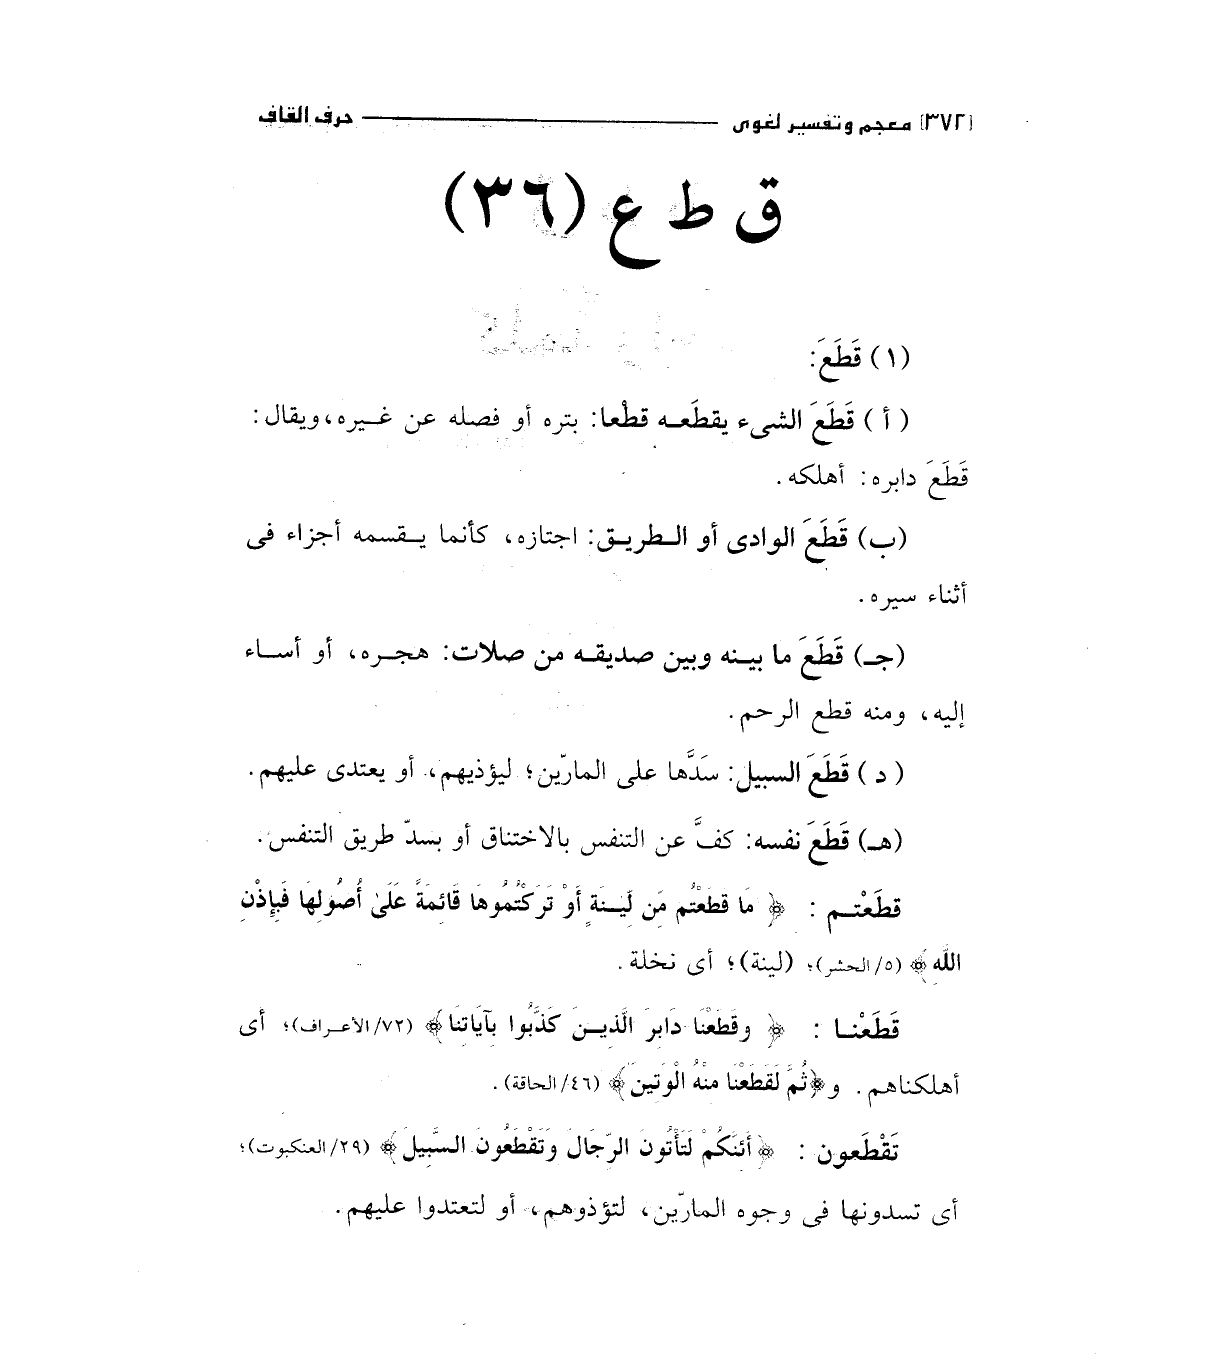 (٣٧٢) معجم وتفسير لغوى حرف القاف
ق ط ع (٣٦)
(١) قَطَعَ:
( أ ) قَطَعَ الشىء يقطَعـه قطْعا: بتره أو فصله عن غـيره، ويقال:
قَطَعَ دابره: أهلكه.
(ب) قَطَعَ الوادى أو الـطريـق: اجتازه، كأنما يـقسمه أجزاء فى
أثناء سيره.
(جـ) قَطَعَ ما بيـنه وبين صديقـه من صلات: هجـره، أو أسـاء
إليه، ومنه قطع الرحم.
( د ) قَطَعَ السبيل: سَدَّها على المارّين؛ ليؤذيهم، أو يعتدى عليهم.
(هـ) قَطَعَ نفسه: كفَّ عن التنفس بالاختناق أو بسدّ طريق التنفس.
قطَعْتـم : ﴿ مَا قَطَعْتُم مِّن لِّيـنَةٍ أَوْ تَرَكْتُمُوهَا قَائِمَةً عَلَىٰ أُصُولِهَا فَبِإِذْنِ
اللَّهِ﴾ (٥/ الحشر)؛ (لينة)؛ أى نخلة.
قَطَعْنـا : ﴿ وَقَطَعْنَا دَابِرَ الَّذِيـنَ كَذَّبُوا بِآيَاتِنَا﴾ (٧٢/ الأعـراف)؛ أى
أهلكناهم. و﴿ثُمَّ لَقَطَعْنَا مِنْهُ الْوَتِينَ﴾ (٤٦/ الحاقة).
تَقْطَعون : ﴿أَئِنَّكُمْ لَتَأْتُونَ الرِّجَالَ وَتَقْطَعُونَ السَّبِيلَ﴾ (٢٩/ العنكبوت)؛
أى تسدونها فى وجوه المارّين، لتؤذوهم، أو لتعتدوا عليهم.